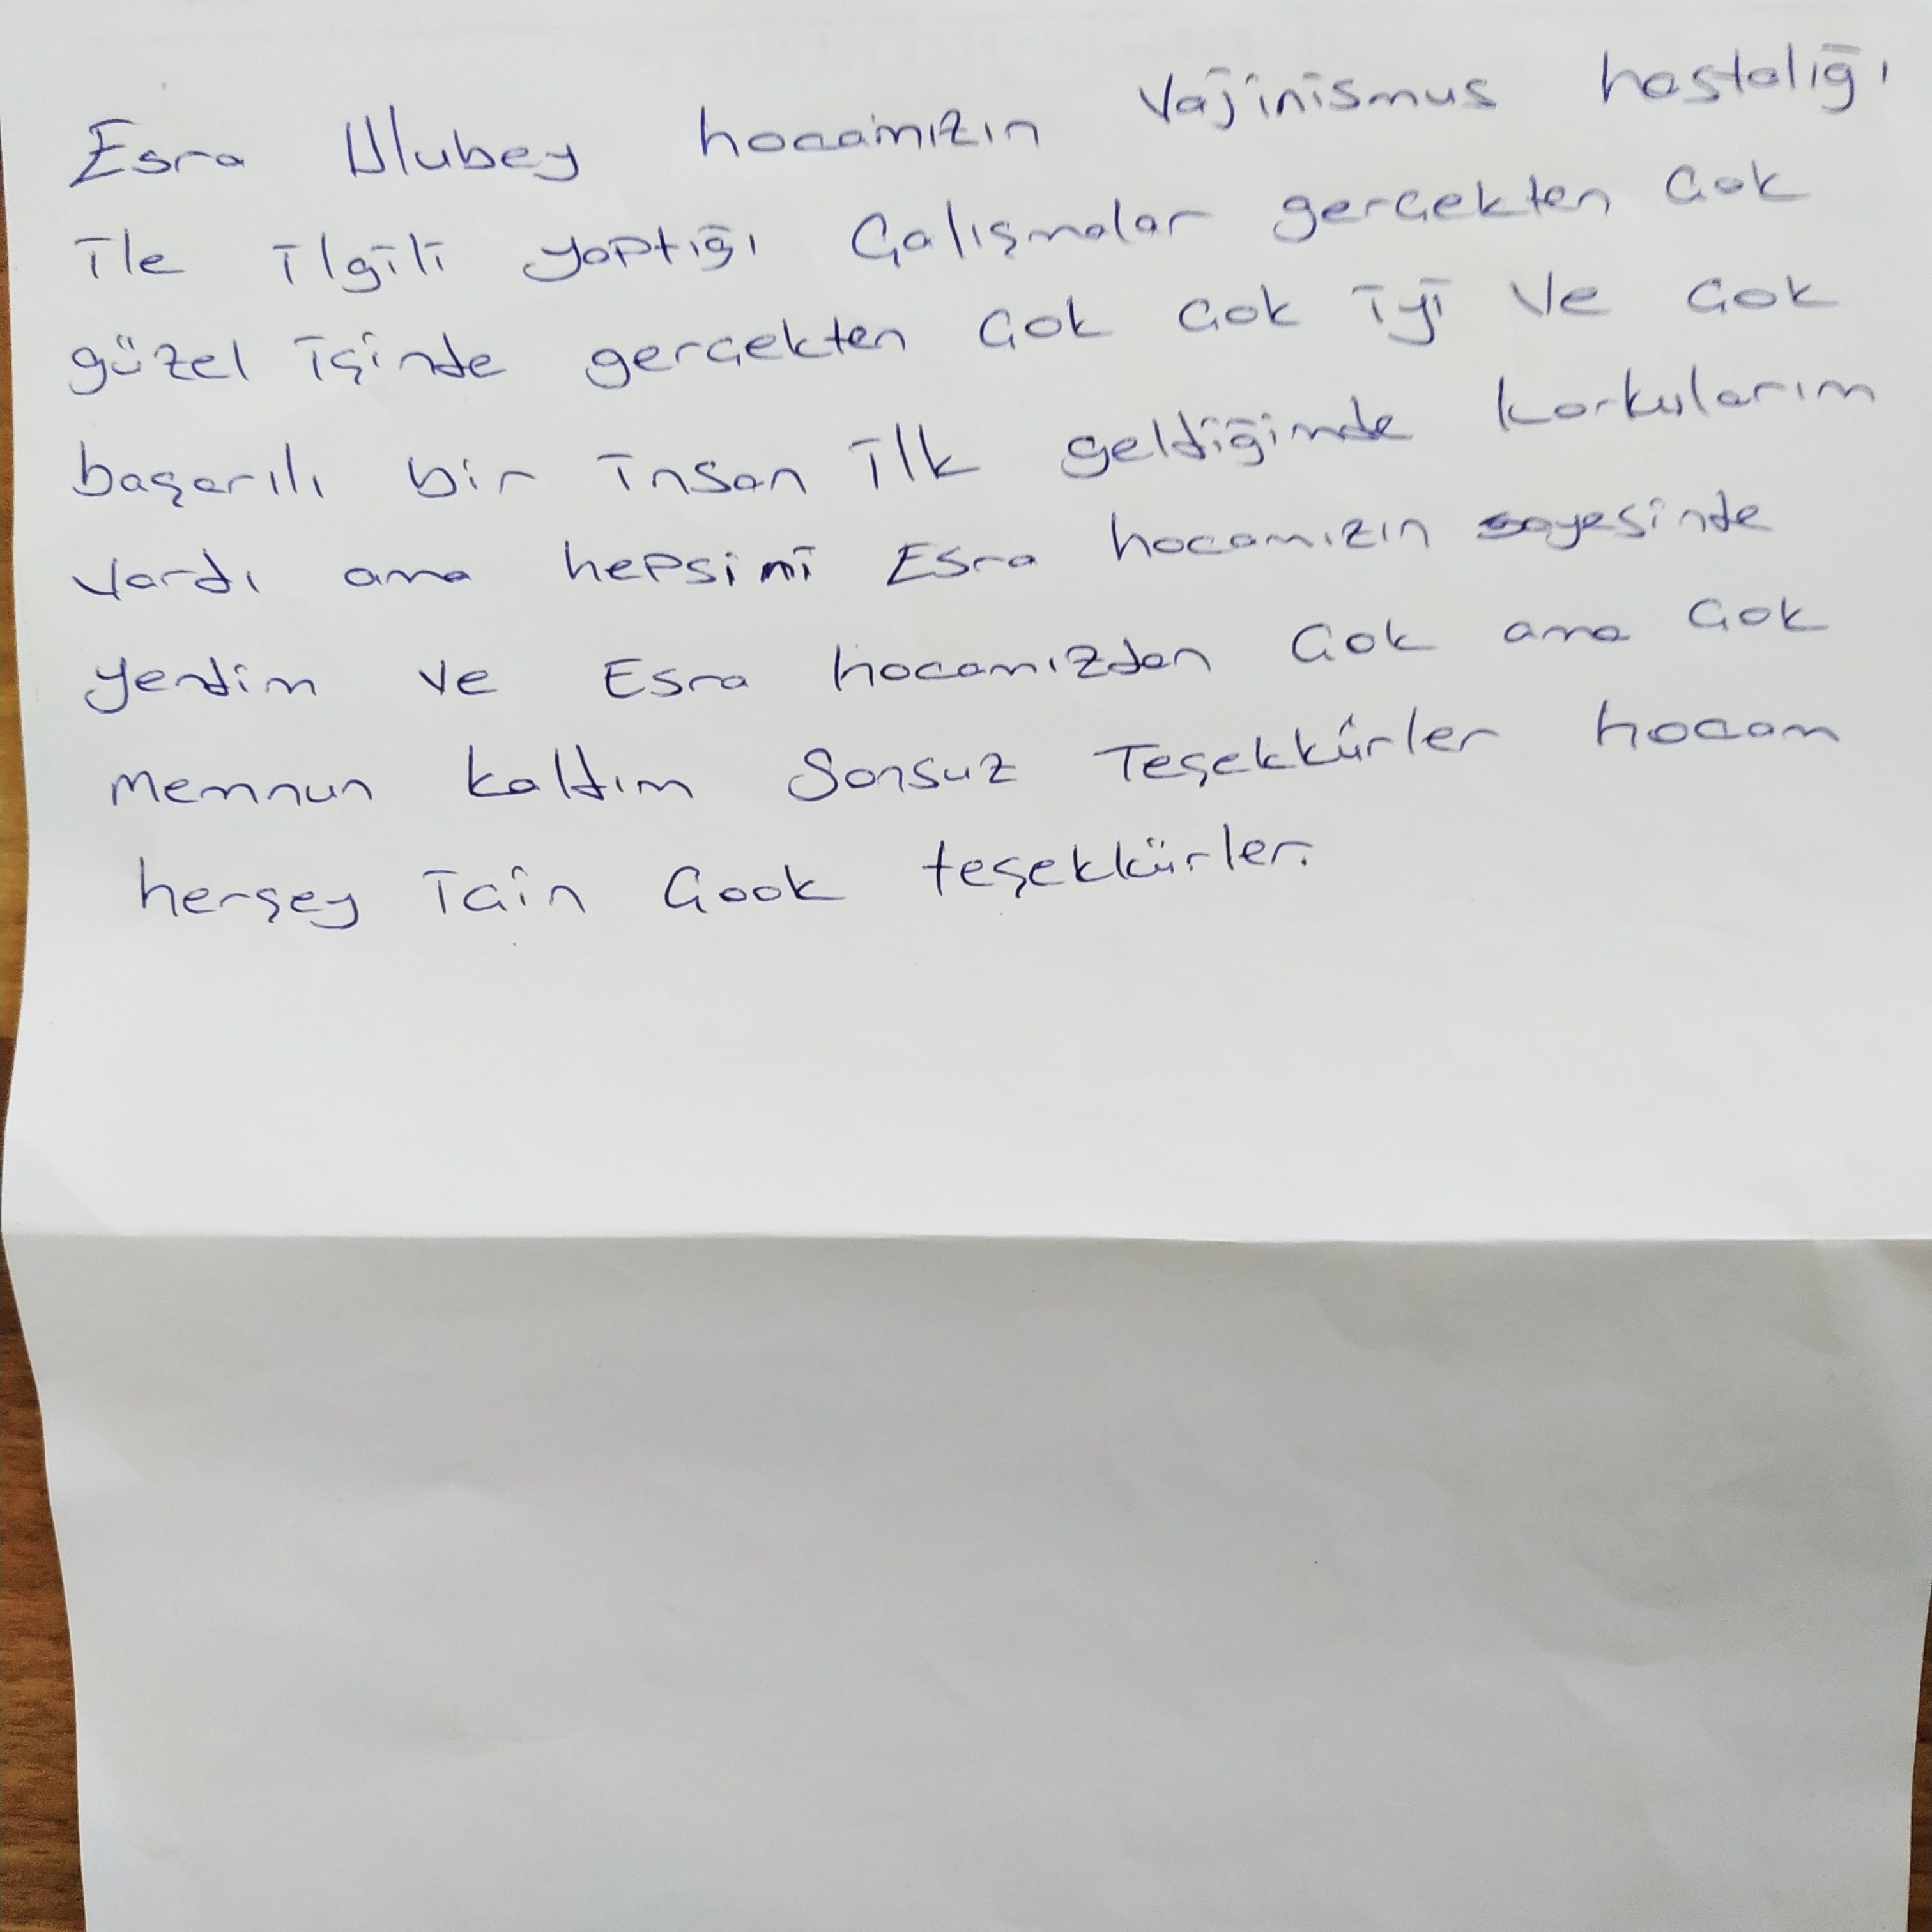 Esra Ulubey hocamızın Vajinismus hastalığı
ile ilgili yaptığı Çalışmalar gerçekten Çok
güzel işinde gerçekten Çok Çok iyi ve Çok
başarılı bir insan ilk geldiğimde korkularım
vardı ama hepsini Esra hocamızın sayesinde
yendim ve Esra hocamızdan Çok ama Çok
memnun kaldım Sonsuz Teşekkürler hocam
herşey için Çook teşekkürler.